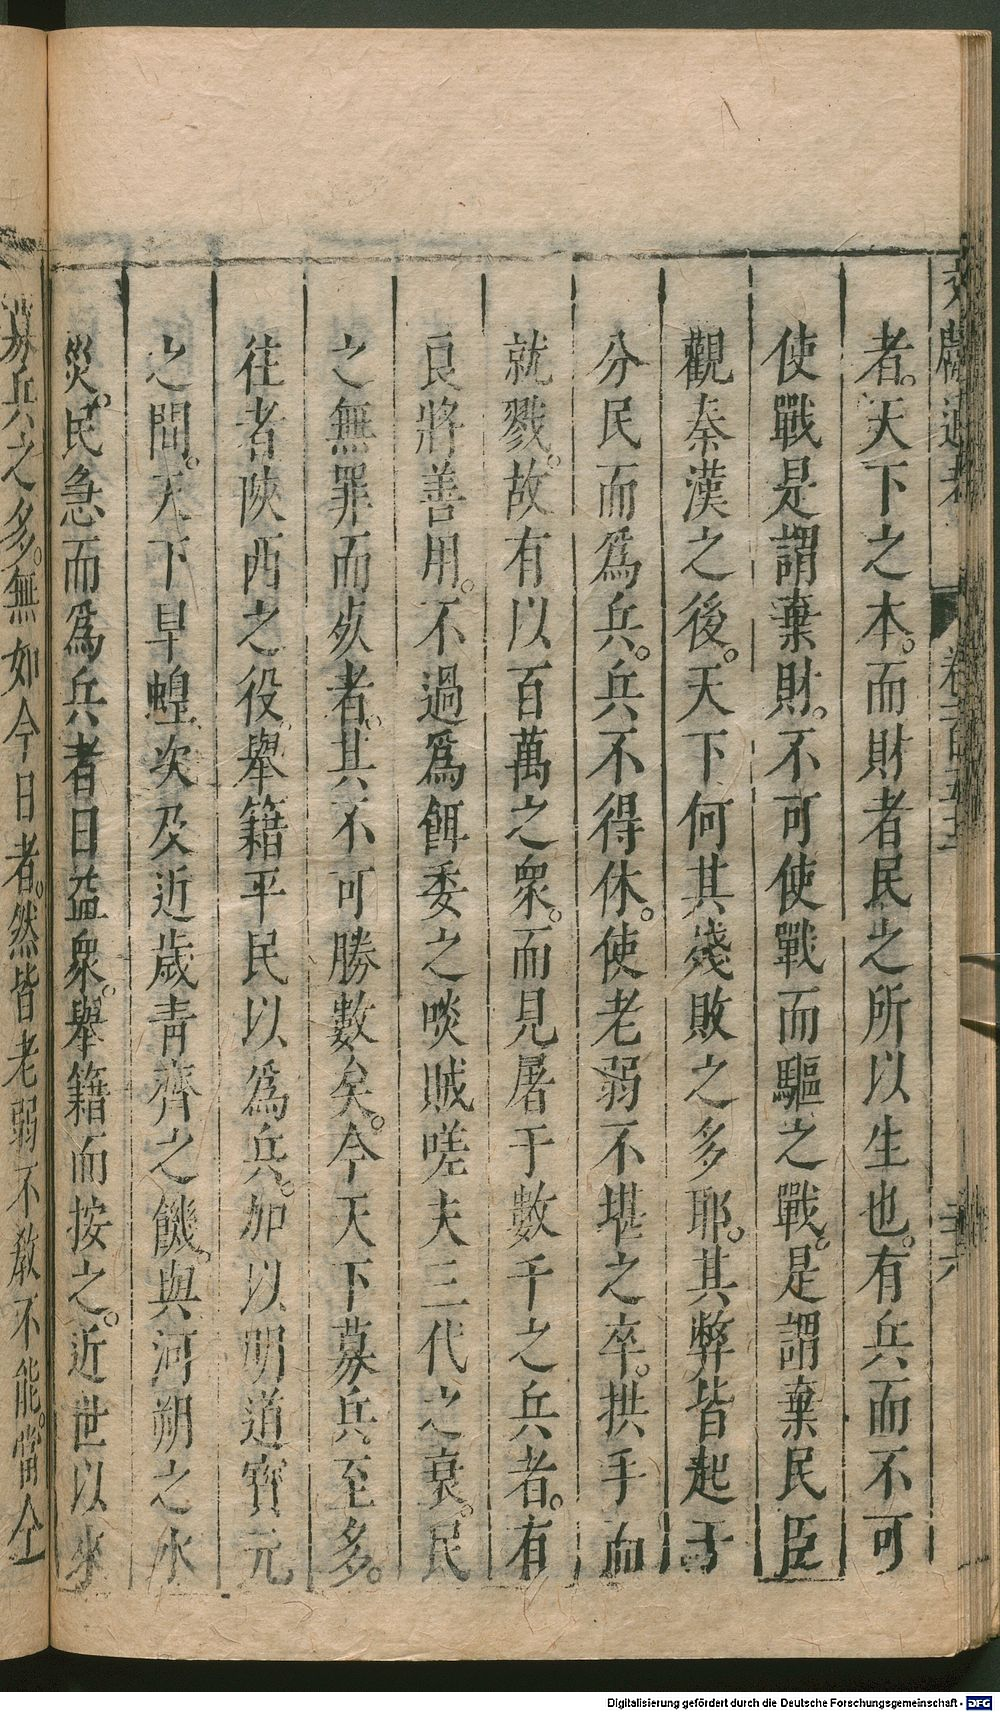 者。天下之本。而財者民之所以生也。有兵而不可
使戰是謂棄財。不可使戰而驅之戰。是謂棄民臣
觀秦漢之後。天下何其殘敗之多耶。其弊皆起于
分民而爲兵。兵不得休。使老弱不堪之卒。拱手而
就戮。故有以百萬之衆。而見屠于數千之兵者。有
良將善用。不過爲餌委之啖賊嗟夫三代之衰。民
之無罪而死者。其不可勝數矣。今天下募兵至多。
往者陝西之役。舉籍平民以爲兵。加以明道寶元
之間。天下旱蝗。次及近歲靑齊之饑。與河朔之水
災。民急而爲兵者日益衆。舉籍而按之。近世以來
募兵之多。無如今日者。然皆老弱不教不能。當今
Digitalisierung gefördert durch die Deutsche Forschungsgemeinschaft - DFG